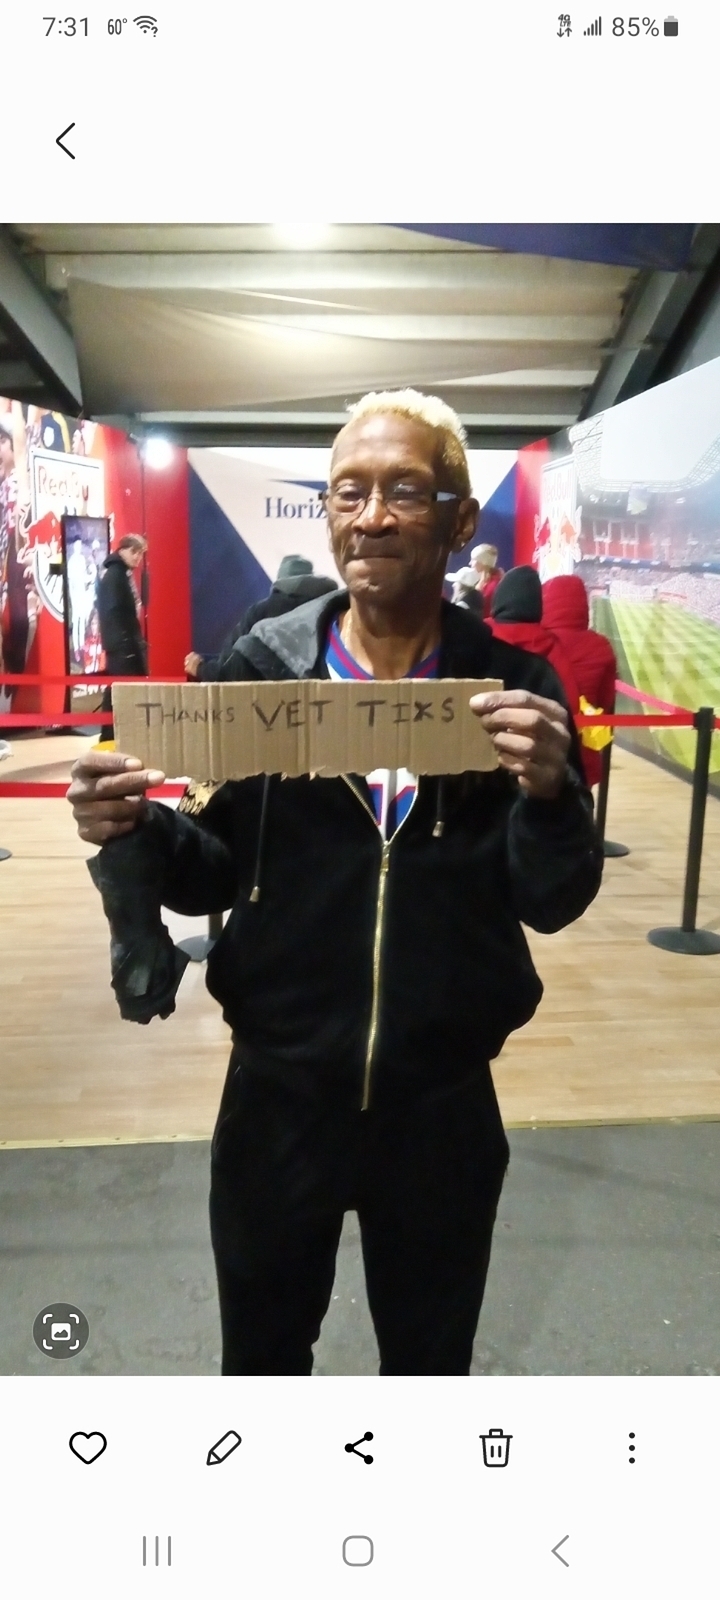 7:31 60°
85%
Red Bu
Horiz
THANKS VET TIXS